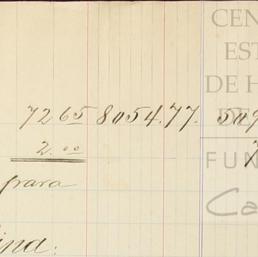 CEN
EST
DE H
DE
72 65 8054.77.
2.00
FUN
para
Ca
ina.